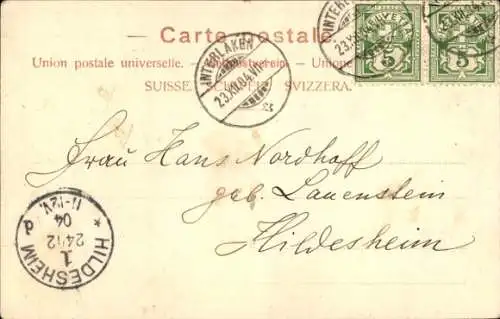 Carte postale.
Union postale universelle. — Weltpostverein. — Unione
SUISSE. SCHWEIZ. SVIZZERA.
INTERLAKEN
23.XII.04.VII
HELVETIA
5
5
Frau Hans Nordhoff
geb. Lauenstein
Hildesheim
HILDESHEIM
24/12
04
11-12V.
1
* d